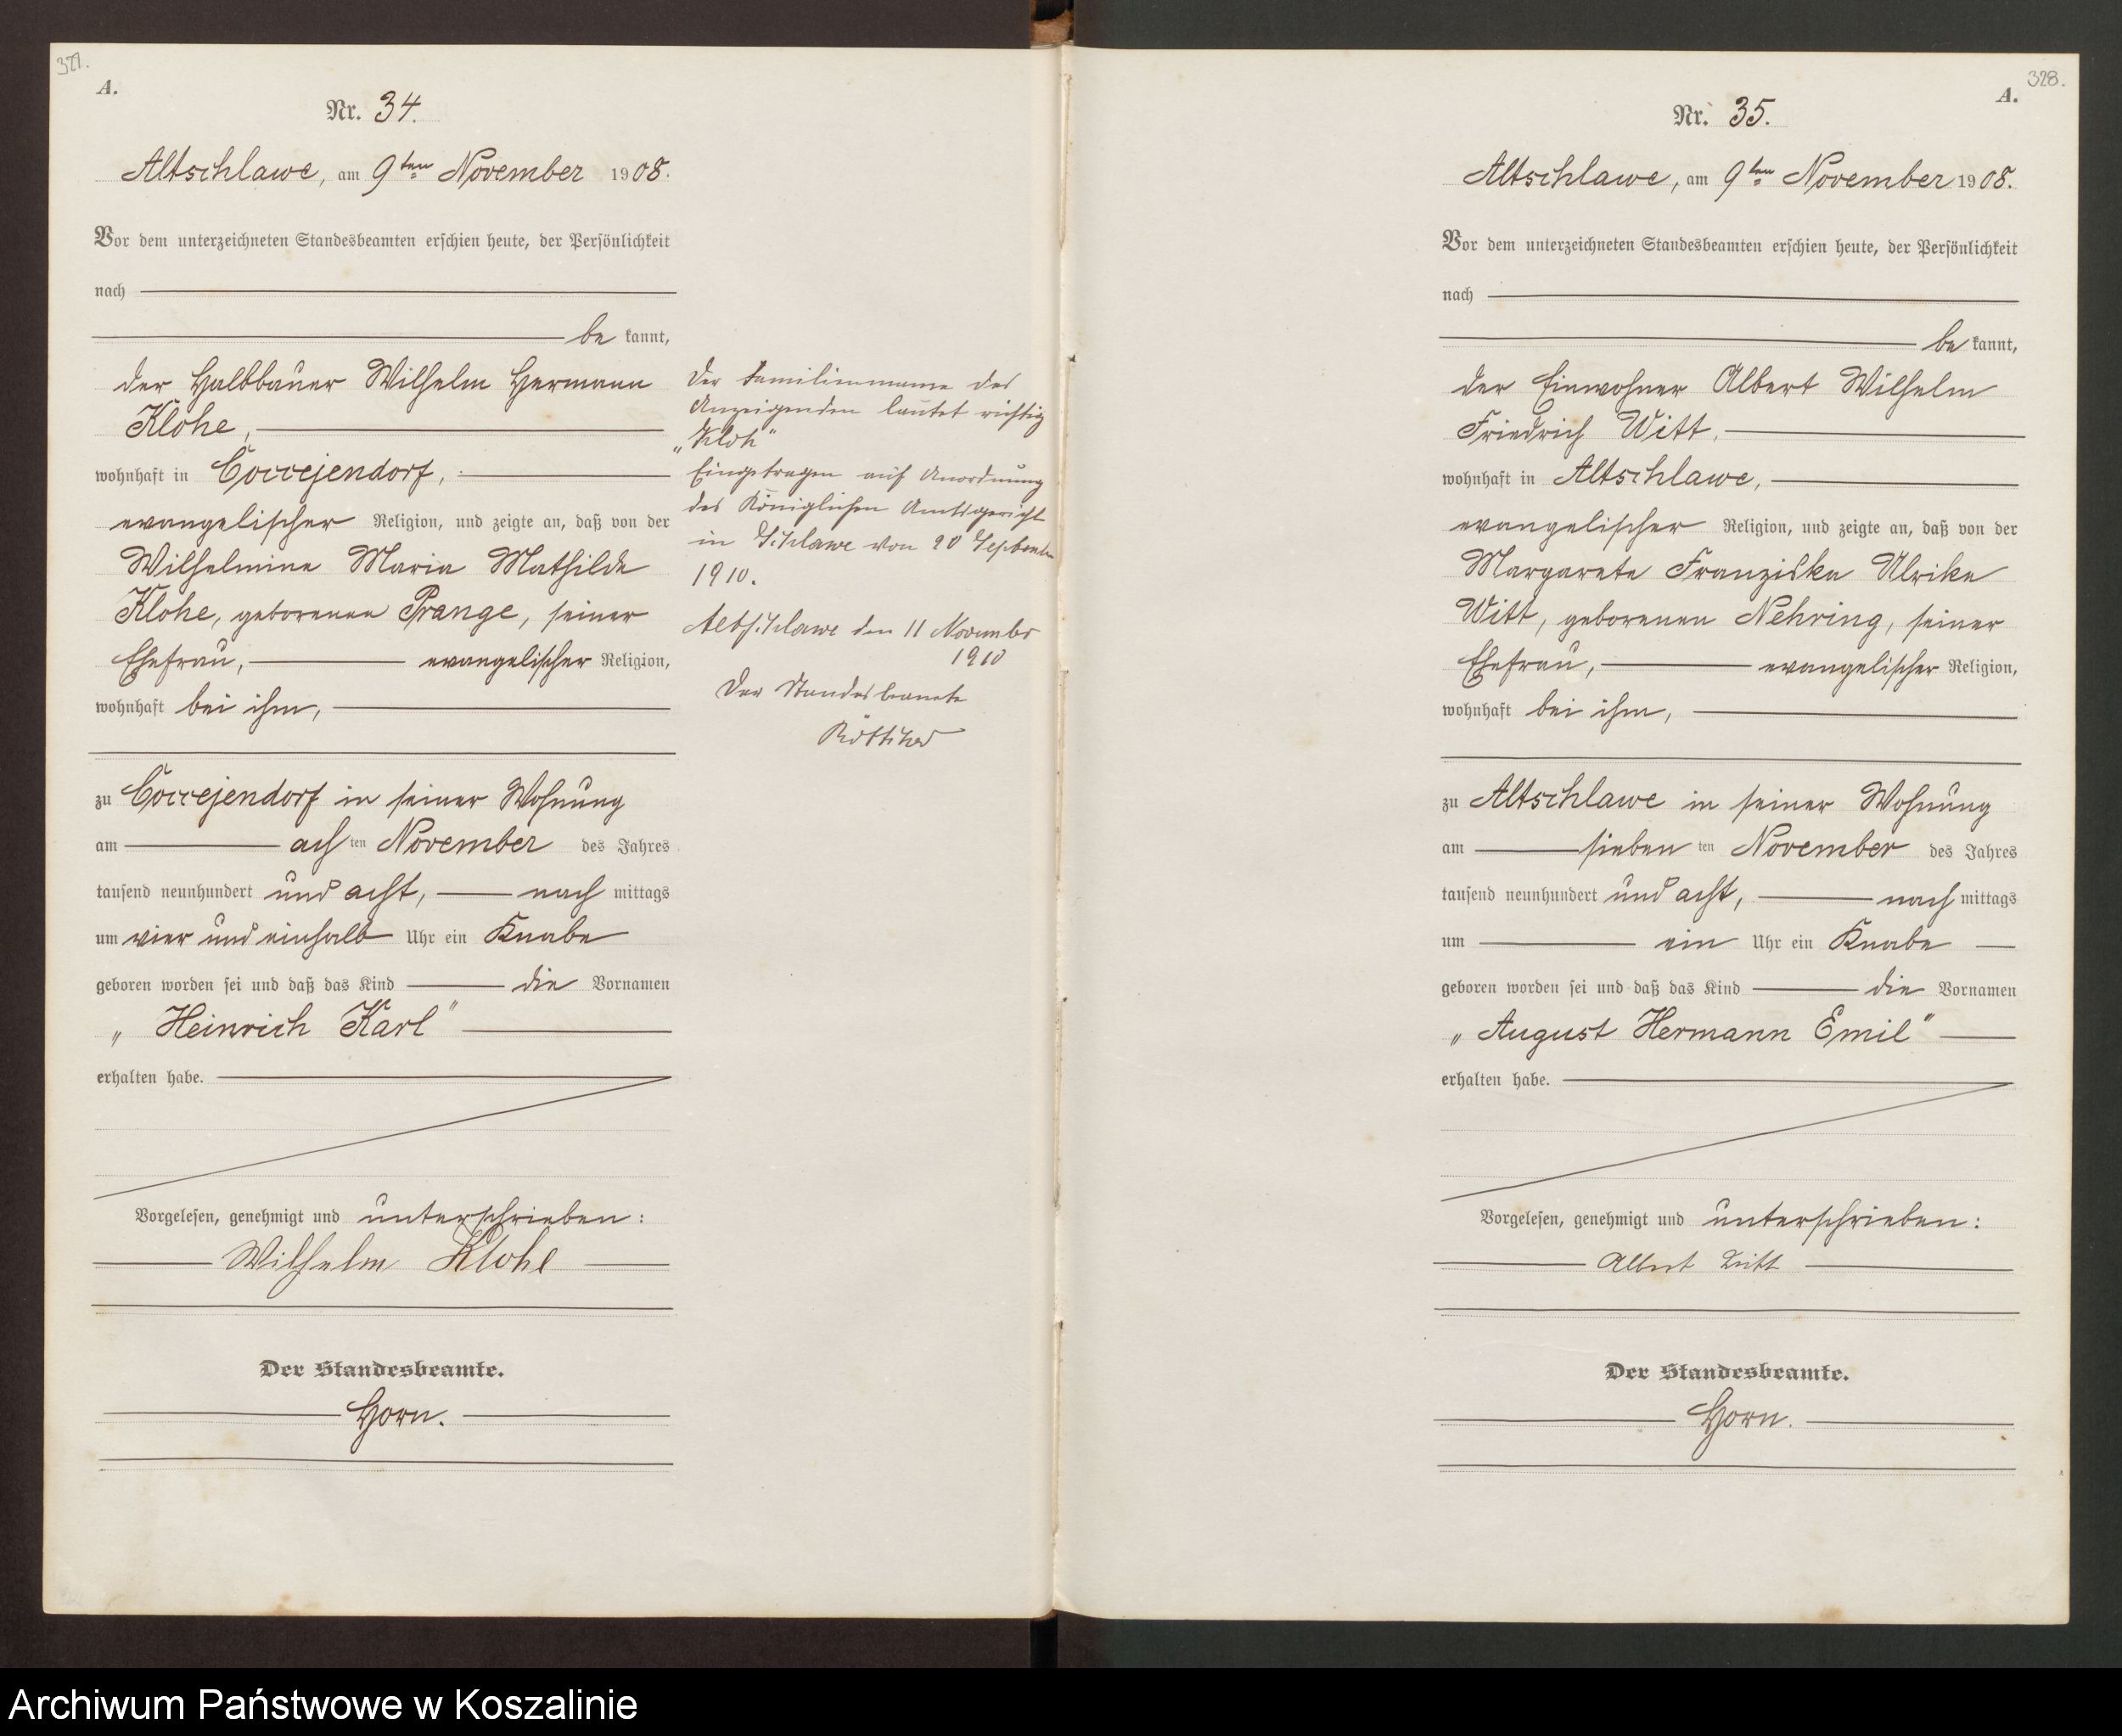 327.
A.
Nr. 34.
Altschlawe, am 9ten November 1908.
Vor dem unterzeichneten Standesbeamten erschien heute, der Persönlichkeit
nach
be kannt,
der Halbbauer Wilhelm Hermann
Klohe,
wohnhaft in Coccejendorf,
evangelischer Religion, und zeigte an, daß von der
Wilhelmine Maria Mathilde
Klohe, geborenen Prange, seiner
Ehefrau, evangelischer Religion,
wohnhaft bei ihm,
zu Coccejendorf in seiner Wohnung
am achten November des Jahres
tausend neunhundert und acht, nach mittags
um vier und einhalb Uhr ein Knabe
geboren worden sei und daß das Kind die Vornamen
„Heinrich Karl"
erhalten habe.
Vorgelesen, genehmigt und unterschrieben:
Wilhelm Klohe
Der Standesbeamte.
Horn.
Der Familienname des
Anzeigenden lautet richtig
„Kloh"
Eingetragen auf Anordnung
des Königlichen Amtsgericht
in Schlawe von 20 September
1910.
Altschlawe den 11 November
1910
Der Standesbeamte
328.
A.
Nr. 35.
Altschlawe, am 9ten November 1908.
Vor dem unterzeichneten Standesbeamten erschien heute, der Persönlichkeit
nach
be kannt,
der Einwohner Albert Wilhelm
Friedrich Witt,
wohnhaft in Altschlawe,
evangelischer Religion, und zeigte an, daß von der
Margarete Franziska Ulrike
Witt, geborenen Nehring, seiner
Ehefrau, evangelischer Religion,
wohnhaft bei ihm,
zu Altschlawe in seiner Wohnung
am sieben ten November des Jahres
tausend neunhundert und acht, nach mittags
um ein Uhr ein Knabe
geboren worden sei und daß das Kind die Vornamen
„August Hermann Emil"
erhalten habe.
Vorgelesen, genehmigt und unterschrieben:
Albert Witt
Der Standesbeamte.
Horn.
Archiwum Państwowe w Koszalinie